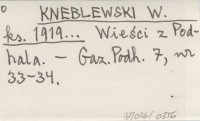 KNEBLEWSKI W.
ks. 1919... Wieści z Pod-
hala. – Gaz. Podh. 7, nr
33-34.